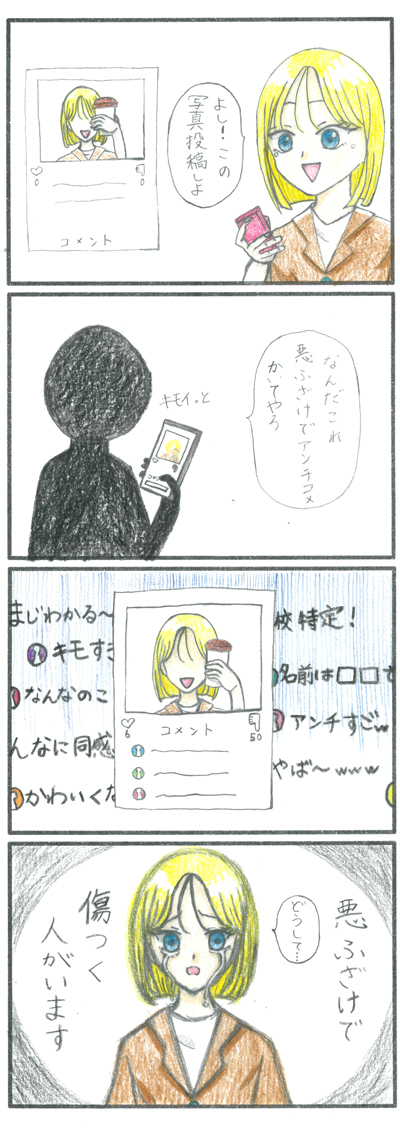 よし！この
写真投稿しよ
0
0
コメント
なんだこれ
悪ふざけでアンチコメ
かいてやろ
キモイっと
まじわかる〜
キモすぎ
なんなのこ
んなに同感
かわいくな
6
コメント
50
校特定！
名前は□□
アンチすごw
やば〜www
悪ふざけで
どうして…
傷つく
人がいます